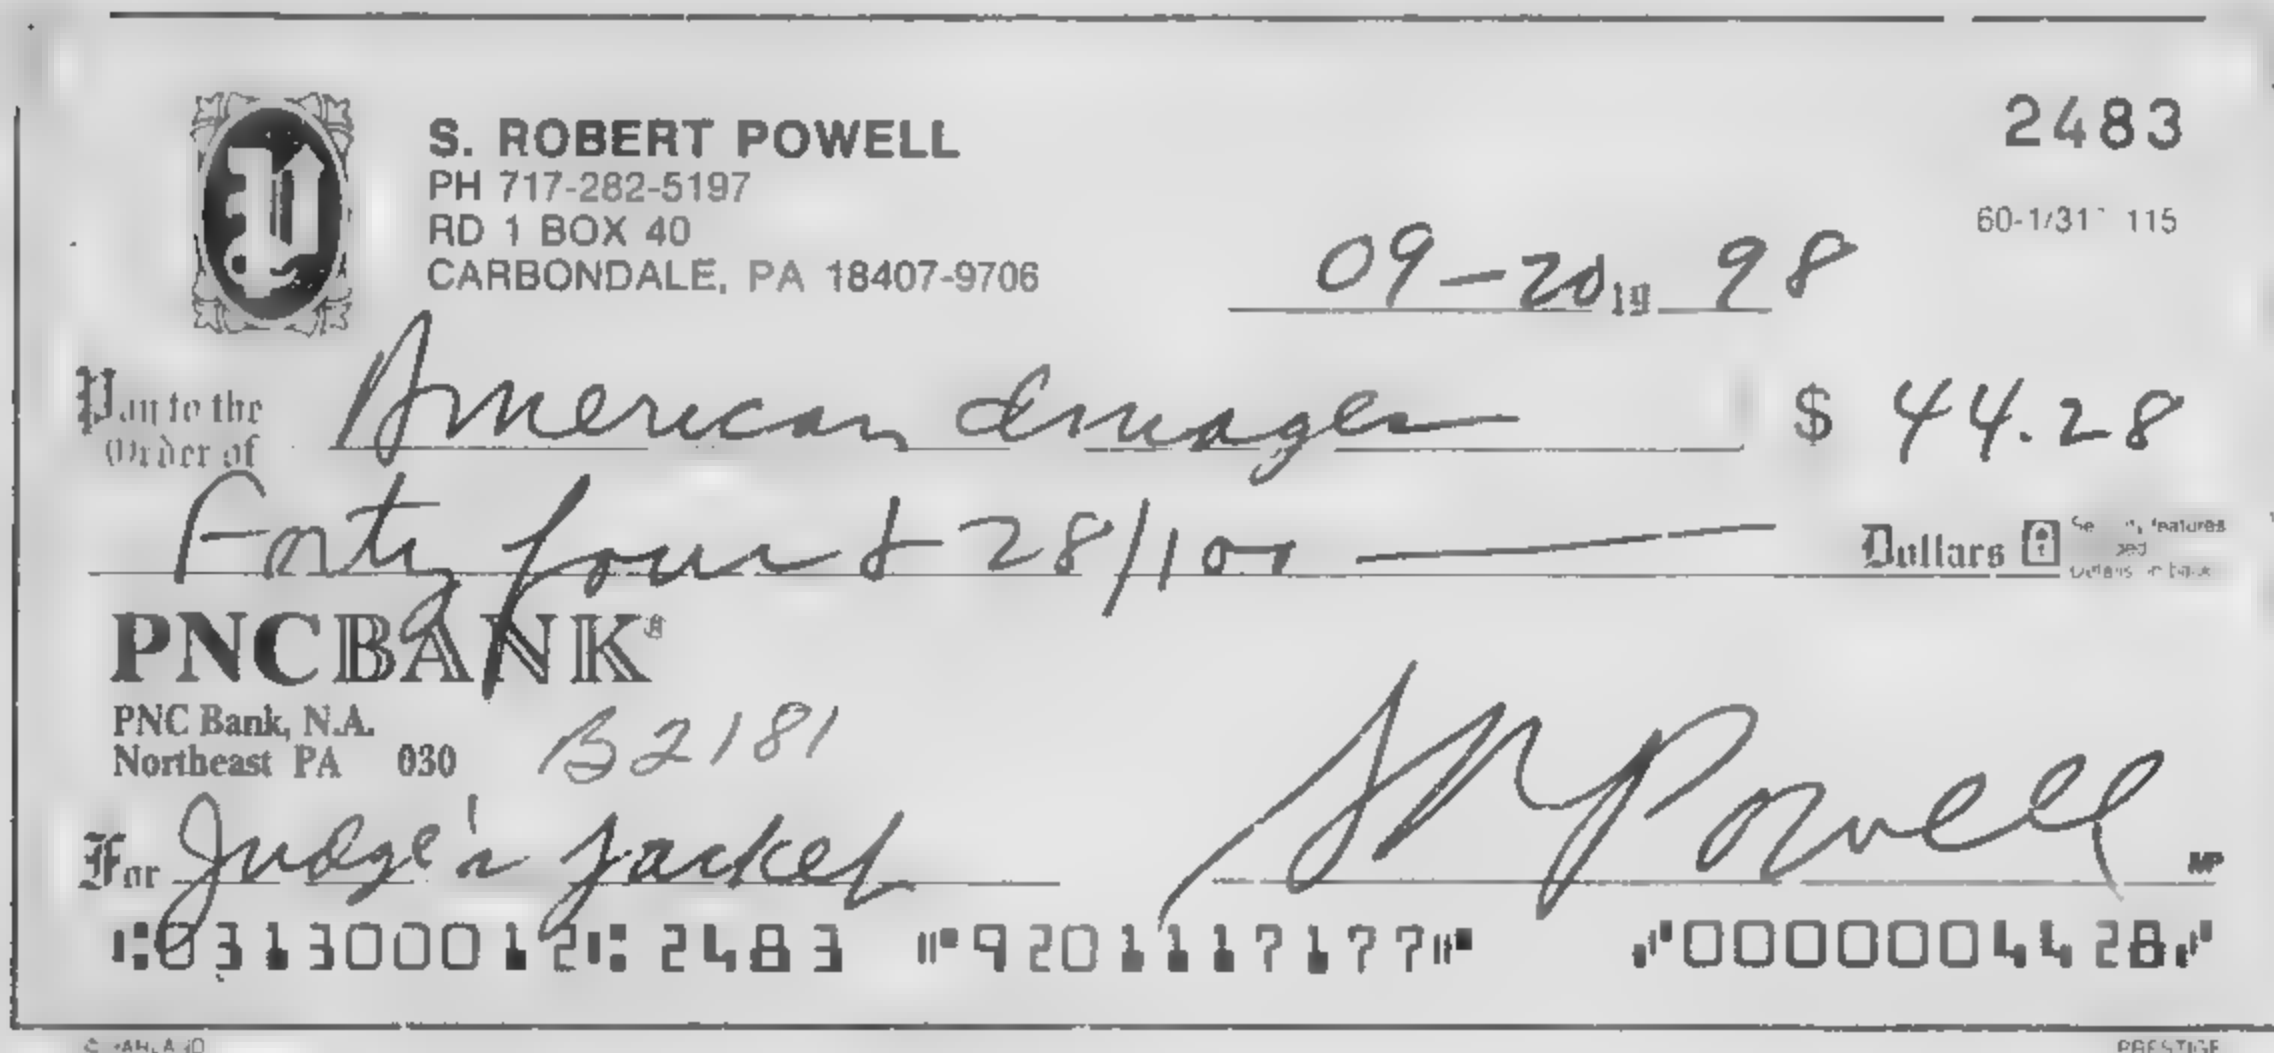 S. ROBERT POWELL
2483
PH 717-282-5197
RD 1 BOX 40
60-1/31 115
CARBONDALE, PA 18407-9706
09-20, 19 98
Pay to the
Order of American Images $ 44.28
Forty four & 28/100 Dollars
features
PNCBANK®
PNC Bank, N.A.
Northeast PA 030 B2181
For Judge's jacket SRPowell
MP
⑆031300012⑆ 2483 ⑈9201117177⑈ ⑇0000004428⑇
PRESTIGE